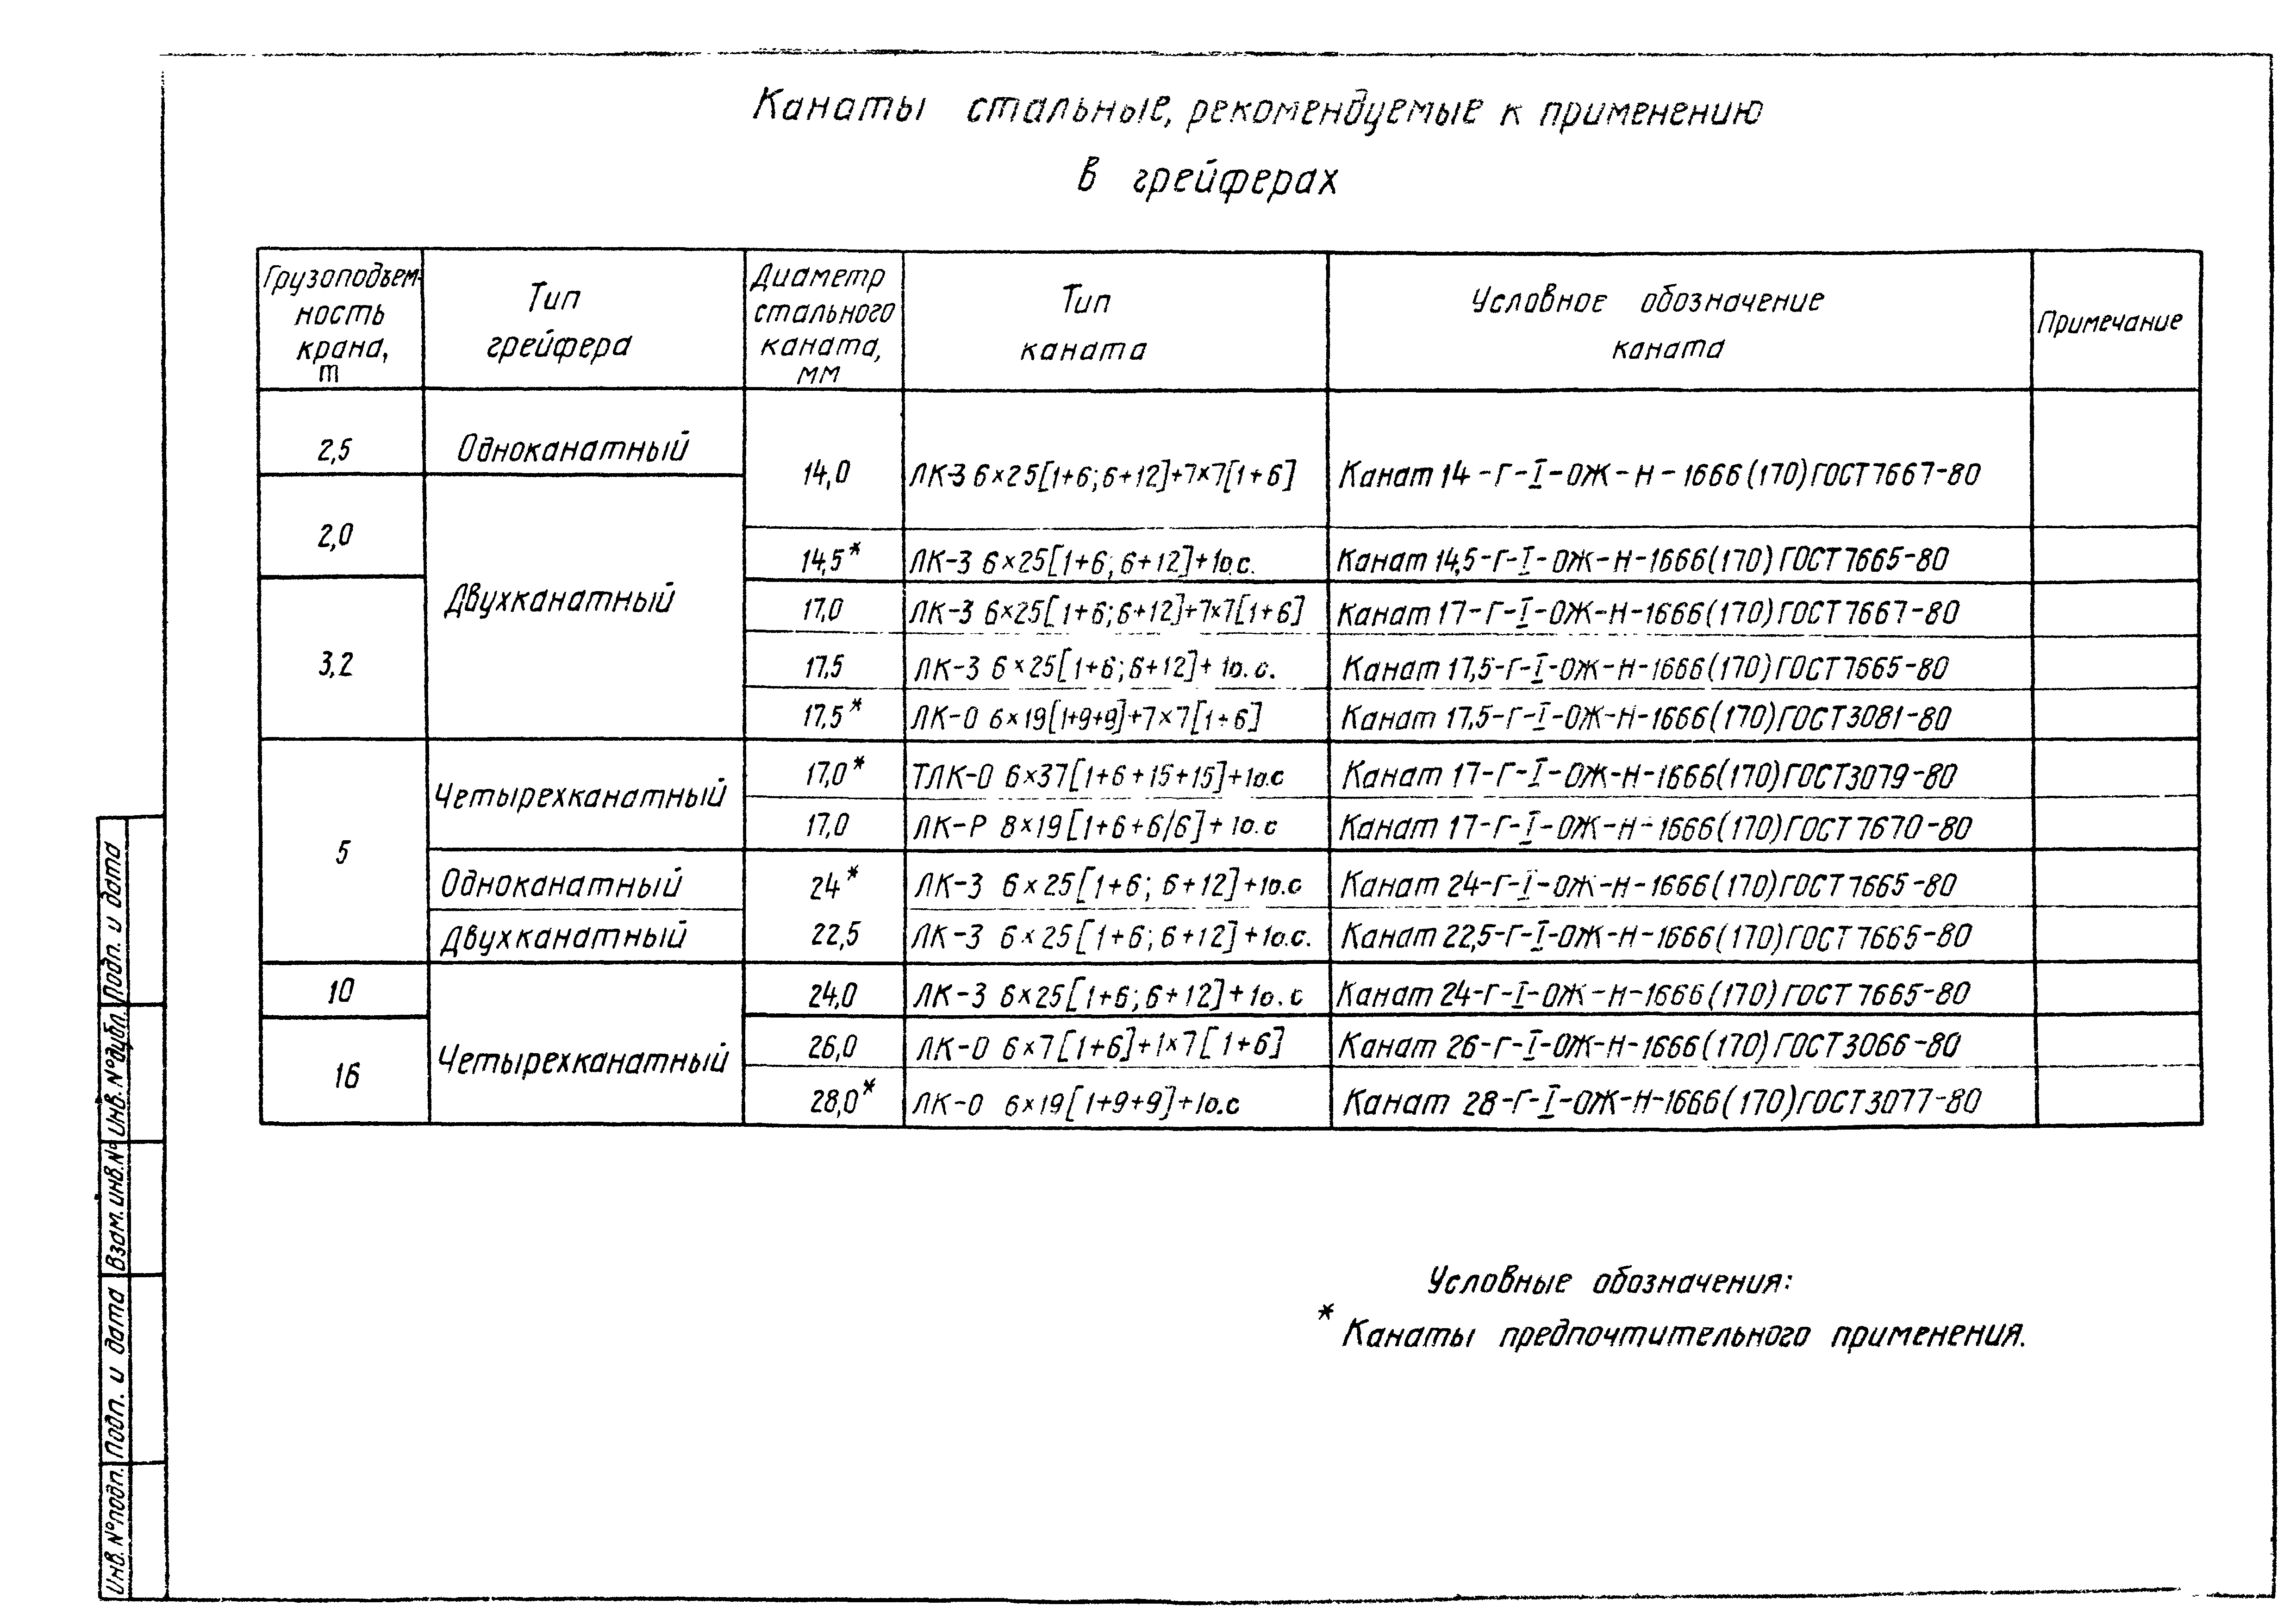 Канаты стальные, рекомендуемые к применению
в грейферах
Грузоподъем-
ность
крана,
т
Тип
грейфера
Диаметр
стального
каната,
мм
Тип
каната
Условное обозначение
каната
Примечание
2,5
Одноканатный
14,0
ЛК-З 6×25[1+6;6+12]+7×7[1+6]
Канат 14-Г-I-ОЖ-Н-1666(170)ГОСТ7667-80
2,0
Двухканатный
14,5*
ЛК-З 6×25[1+6;6+12]+1о.с.
Канат 14,5-Г-I-ОЖ-Н-1666(170)ГОСТ7665-80
3,2
17,0
ЛК-З 6×25[1+6;6+12]+7×7[1+6]
Канат 17-Г-I-ОЖ-Н-1666(170)ГОСТ7667-80
17,5
ЛК-З 6×25[1+6;6+12]+1о.с.
Канат 17,5-Г-I-ОЖ-Н-1666(170)ГОСТ7665-80
17,5*
ЛК-О 6×19[1+9+9]+7×7[1+6]
Канат 17,5-Г-I-ОЖ-Н-1666(170)ГОСТ3081-80
5
Четырехканатный
17,0*
ТЛК-О 6×37[1+6+15+15]+1о.с
Канат 17-Г-I-ОЖ-Н-1666(170)ГОСТ3079-80
17,0
ЛК-Р 8×19[1+6+6/6]+1о.с
Канат 17-Г-I-ОЖ-Н-1666(170)ГОСТ7670-80
Одноканатный
24*
ЛК-З 6×25[1+6;6+12]+1о.с
Канат 24-Г-I-ОЖ-Н-1666(170)ГОСТ7665-80
Двухканатный
22,5
ЛК-З 6×25[1+6;6+12]+1о.с.
Канат 22,5-Г-I-ОЖ-Н-1666(170)ГОСТ7665-80
10
Четырехканатный
24,0
ЛК-З 6×25[1+6;6+12]+1о.с
Канат 24-Г-I-ОЖ-Н-1666(170)ГОСТ7665-80
16
26,0
ЛК-О 6×7[1+6]+1×7[1+6]
Канат 26-Г-I-ОЖ-Н-1666(170)ГОСТ3066-80
28,0*
ЛК-О 6×19[1+9+9]+1о.с
Канат 28-Г-I-ОЖ-Н-1666(170)ГОСТ3077-80
Условные обозначения:
* Канаты предпочтительного применения.
Инв.№подл.
Подп. и дата
Взам.инв.№
Инв.№дубл.
Подп. и дата